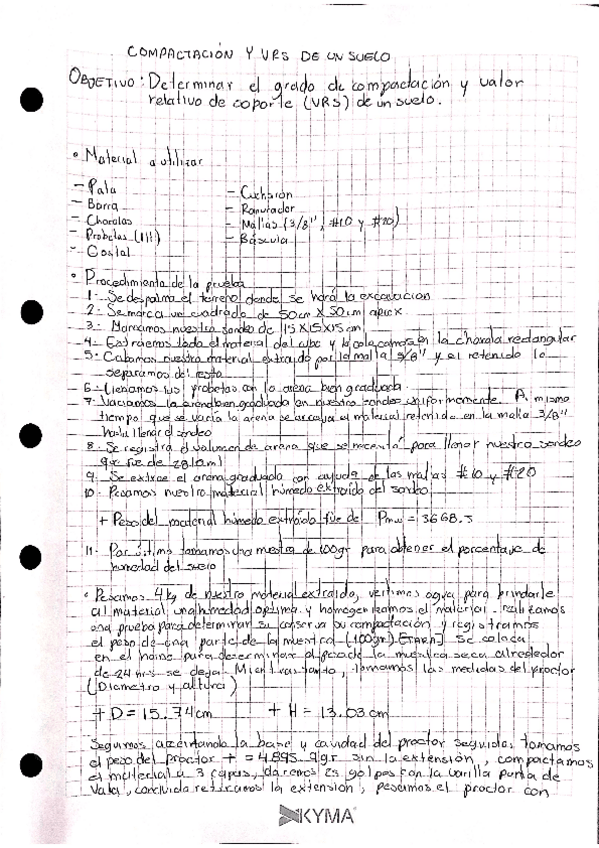 COMPACTACIÓN Y VRS DE UN SUELO
OBJETIVO: Determinar el grado de compactación y valor
relativo de soporte (VRS) de un suelo.
• Material a utilizar
- Pala
- Barra
- Charolas
- Probetas (1lt)
- Costal
- Cucharón
- Ranurador
- Mallas (3/8", #10 y #20)
- Báscula
• Procedimiento de la prueba
1.- Se despalma el terreno donde se hará la excavación
2.- Se marca un cuadrado de 50cm X 50cm aprox
3.- Marcamos nuestro sondeo de 15X15X15cm
4.- Extraemos todo el material del cubo y lo colocamos en la charola rectangular
5.- Cribamos nuestro material extraído por la malla 3/8" y el retenido lo
separamos del resto
6.- Llenamos las probetas con la arena bien graduada.
7.- Vaciamos la arena bien graduada en nuestro sondeo uniformemente. Al mismo
tiempo que se vacía la arena se acomoda el material retenido en la malla 3/8"
hasta llenar el sondeo
8.- Se registra el volumen de arena que se necesitó para llenar nuestro sondeo
que fue de
9.- Se extrae el arena graduada con ayuda de las mallas #10 y #20
10.- Pesamos nuestro material húmedo extraído del sondeo
+ Peso del material húmedo extraído fue de = 3668.5
11.- Por último tomamos una muestra de 100gr para obtener el porcentaje de
humedad del suelo
• Pesamos 4kg de nuestro material extraído, vertimos agua para brindarle
al material una humedad optima y homogenizamos el material. realizamos
una prueba para determinar su compactación y registramos
el peso de una parte de la muestra (100gr). se coloca
en el horno para determinar el peso de la muestra seca alrededor
de 24 hrs se deja. Mientras tanto, tomamos las medidas del proctor
(Diametro y altura)
+ D = 15.74cm + H = 13.03cm
Seguimos aceitando la base y cavidad del proctor seguido, tomamos
el peso del proctor + = 4895.9gr sin la extensión, compactamos
el material a 3 capas, daremos 25 golpes con la varilla punta de
bala, concluida retiramos la extensión, pesamos el proctor con
KYMA